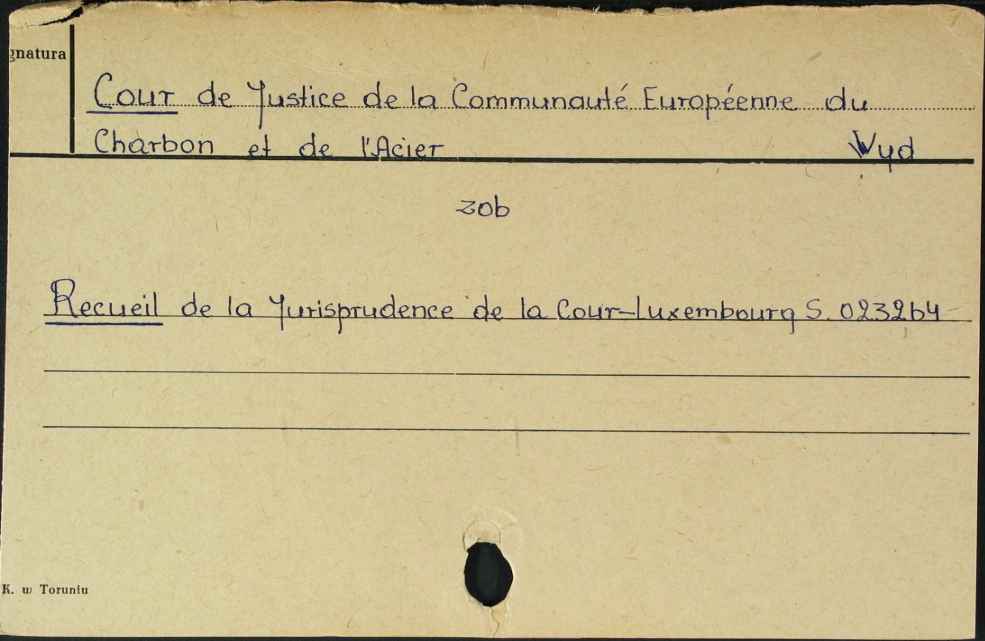 gnatura
Cour de Justice de la Communauté Européenne du
Charbon et de l'Acier Wyd
zob
Recueil de la Jurisprudence de la Cour-Luxembourg S. 0232b4
K. w Toruniu